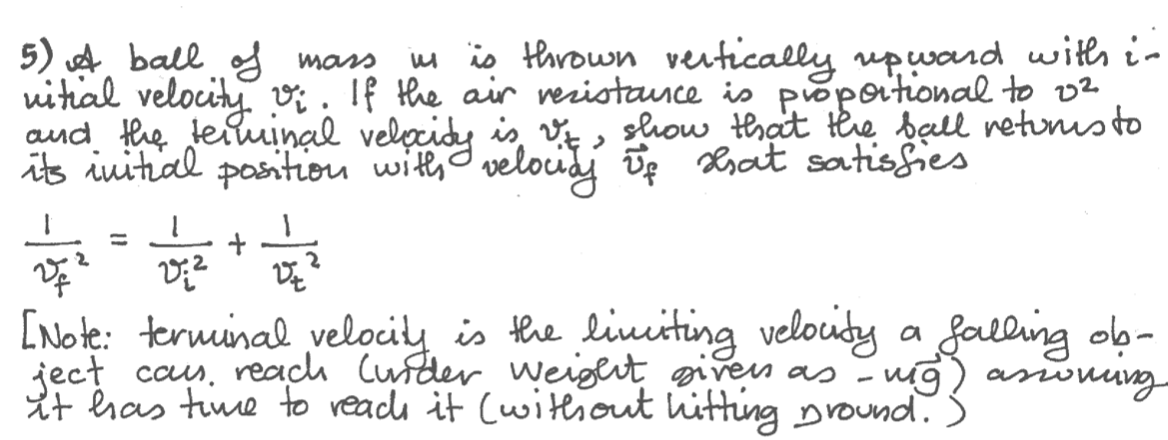 5) A ball of mass m is thrown vertically upward with i-
nitial velocity vᵢ. If the air resistance is proportional to v²
and the terminal velocity is vₜ, show that the ball returns to
its initial position with velocity v⃗_f that satisfies
1/v_f² = 1/vᵢ² + 1/vₜ²
[Note: terminal velocity is the limiting velocity a falling ob-
ject can reach (under weight given as -mg⃗) assuming
it has time to reach it (without hitting ground.)